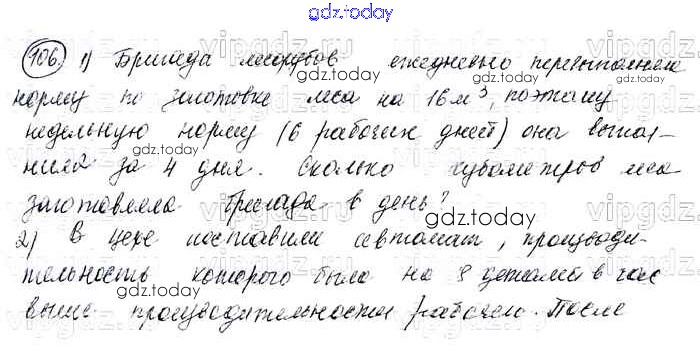 gdz.today
106. 1) Бригада лесорубов ежедневно перевыполняла
норму по заготовке леса на 16 м³, поэтому
недельную норму (6 рабочих дней) она выпол-
нила за 4 дня. Сколько кубометров леса
заготовляла бригада в день?
2) В цехе поставили автомат, производи-
тельность которого была на 8 деталей в час
выше производительности рабочего. После